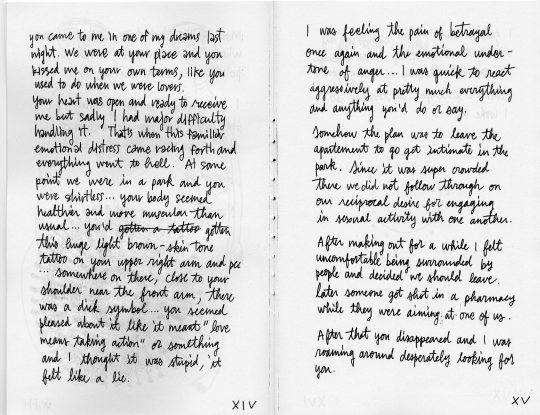 you came to me in one of my dreams last
night. We were at your place and you
kissed me on your own terms, like you
used to do when we were lovers.
Your heart was open and ready to receive
me but sadly I had major difficulty
handling it. That's when this familiar
emotional distress came racing forth and
everything went to hell. At some
point we were in a park and you
were shirtless... your body seemed
healthier and more muscular than
usual... you'd gotten a tattoo gotten
this huge light brown-skin tone
tattoo on your upper right arm and pec
... somewhere on there, close to your
shoulder near the front arm, there
was a dick symbol... you seemed
pleased about it like it meant "love
means taking action" or something
and I thought it was stupid, it
felt like a lie.
XIV
I was feeling the pain of betrayal
once again and the emotional under-
tone of anger... I was quick to react
aggressively at pretty much everything
and anything you'd do or say.
Somehow the plan was to leave the
apartement to go get intimate in the
park. Since it was super crowded
there we did not follow through on
our reciprocal desire for engaging
in sexual activity with one another.
After making out for a while I felt
uncomfortable being surrounded by
people and decided we should leave.
Later someone got shot in a pharmacy
while they were aiming at one of us.
After that you disappeared and I was
roaming around desperately looking for
you.
XV